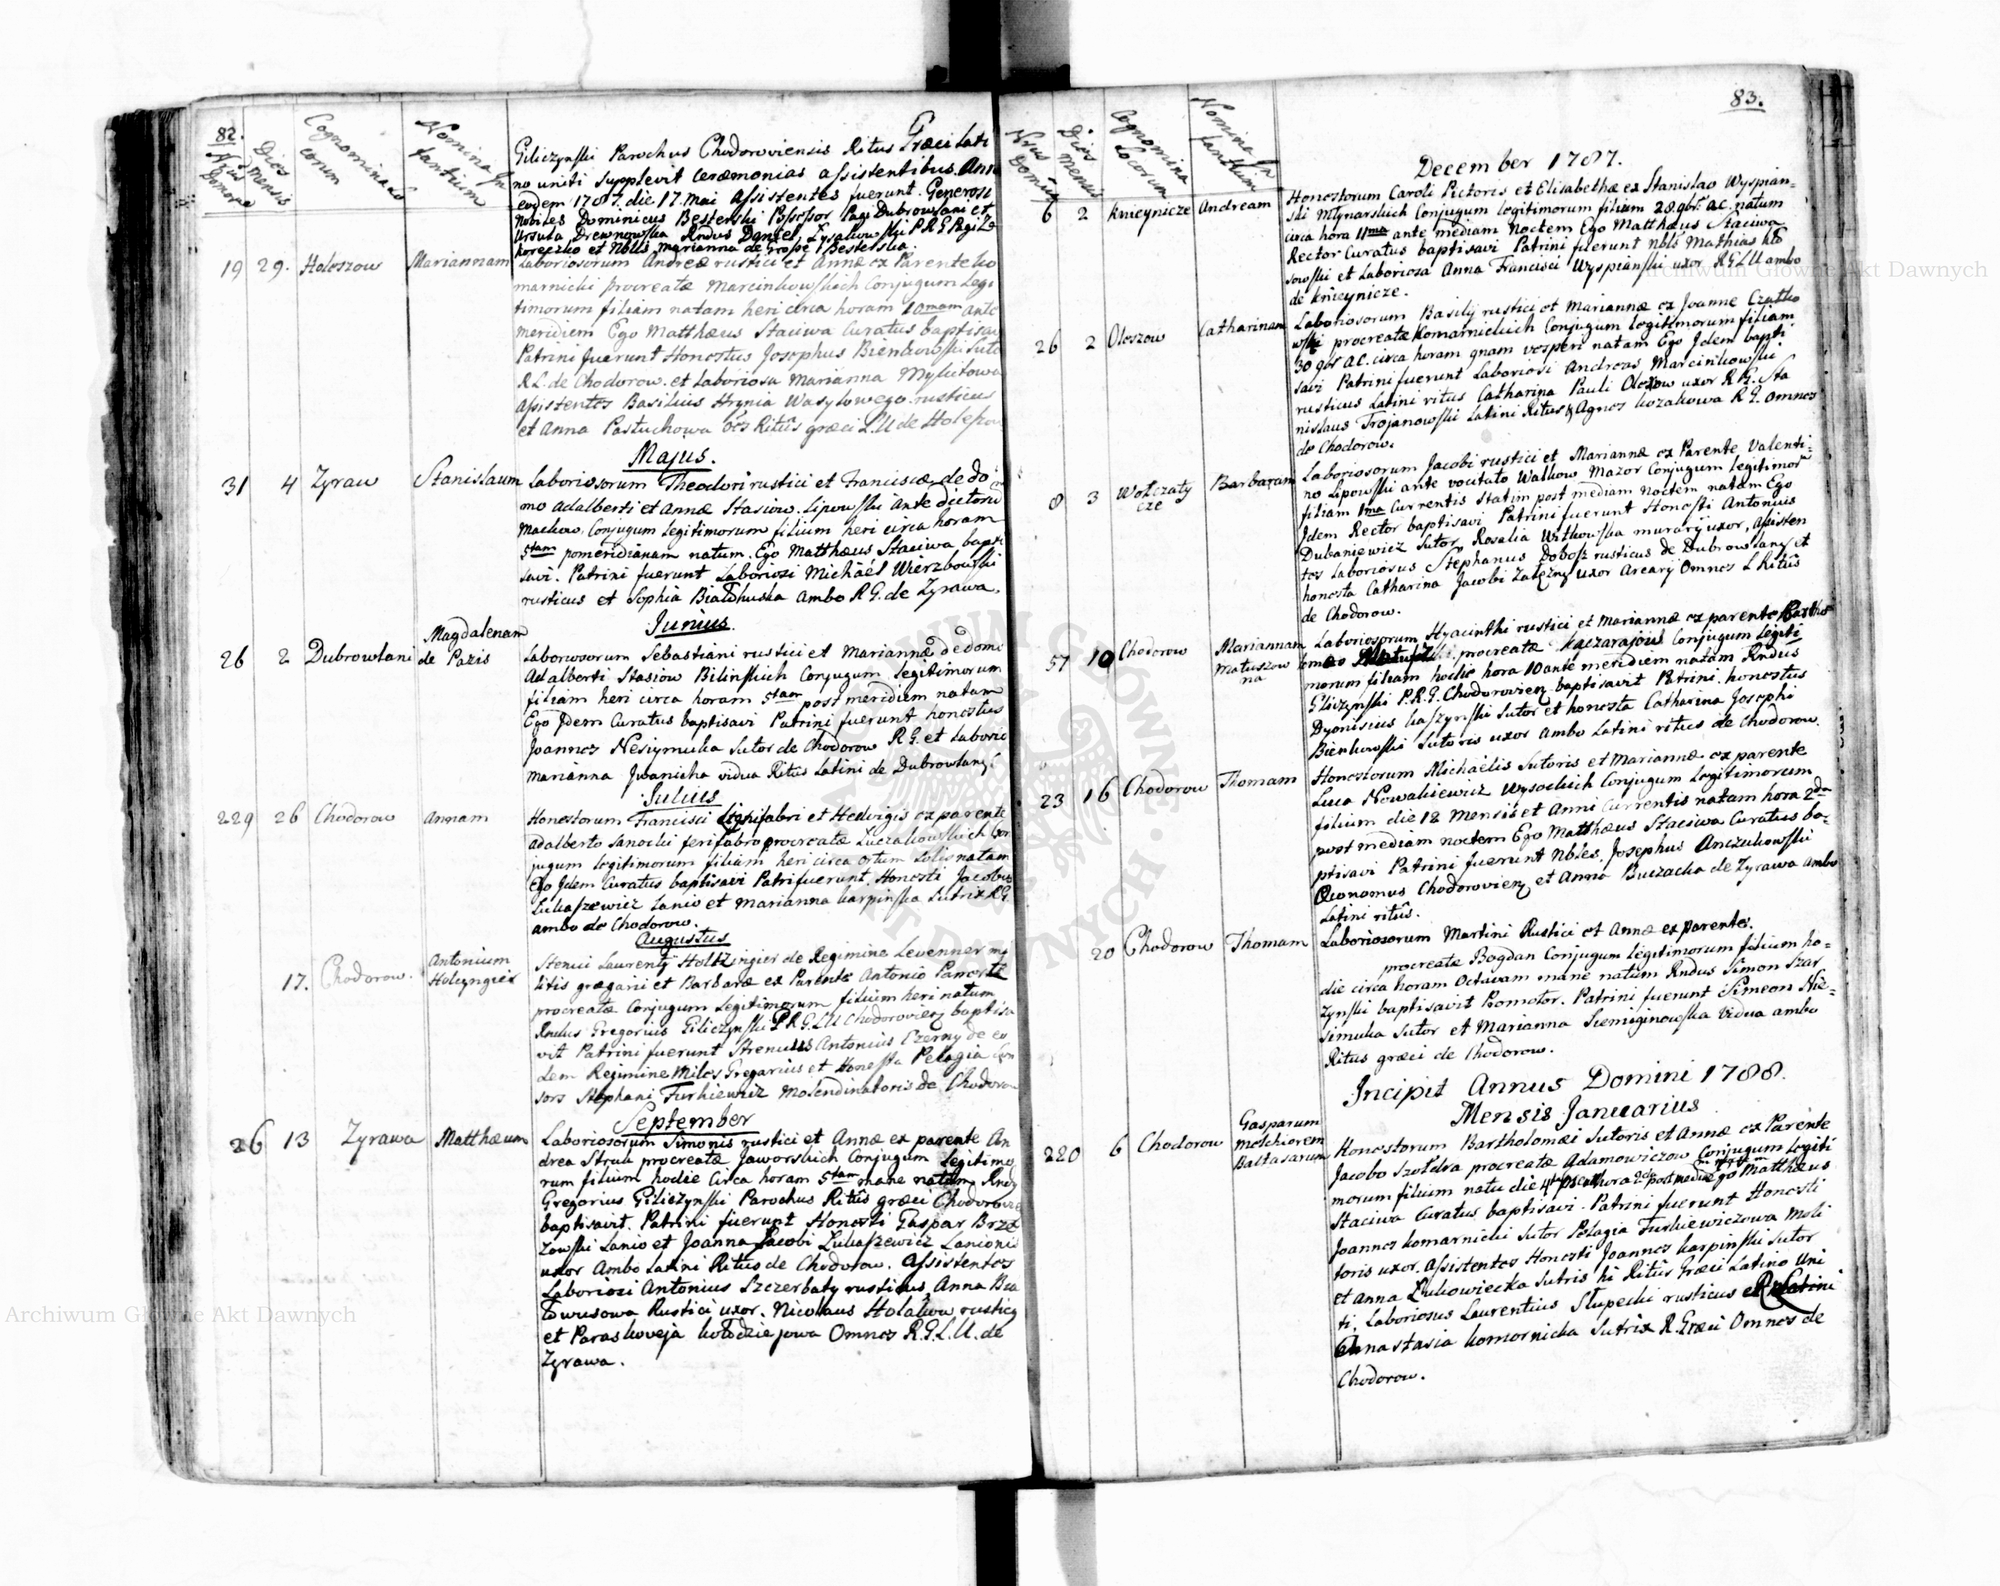 82.
Nrus Domus
Dies mensis
Cognomina Locorum
Nomina Infantium
Giliczynski Parochus Chodoroviensis Ritus Græci Lati
no uniti supplevit ceræmonias assistentibus Anno
eodem 1787. die 17. Mai Assistentes fuerunt. Generosi
Nobiles Dominicus Besterski Possessor Pagi Dubrowlani et
Ursula Drewnowska Rndus Daniel Lysakowski P.R.G. Pagi
et Nblis Marianna de Besterska.
19 29. Holeszow Mariannam
Laboriosorum Andreæ rustici et Annæ ex Parente Ko
marnicki procreatæ Marcinkowskich Conjugum Legi
timorum filiam natam heri circa horam 10mam ante
meridiem Ego Matthæus Staciwa Curatus baptisavi
Patrini fuerunt Honestus Josephus Bienkowski Sutor
R.L. de Chodorow. et Laboriosa Marianna Mylutowa
Assistentes Basilius Hrynia Wasylowego rusticus
et Anna Pastuchowa Ritûs græci L.U. de Holeszow
Majus.
31 4 Zyraw Stanislaum
Laboriosorum Theodori rustici et Franciscæ de do
mo Adalberti et Annæ Stasiow. Lipowski Ante dictorum
Mackow, Conjugum legitimorum filium heri circa horam
5tam pomeridianam natum. Ego Matthæus Staciwa bapti
savi. Patrini fuerunt Laboriosi Michaël Wierzbowski
rusticus et Sophia Ambo R.G. de Zyrawa.
Junius.
26 2 Dubrowlani Magdalenam de Pazis
Laboriosorum Sebastiani rustici et Mariannæ de domo
Adalberti Stasiow Bilinskich Conjugum legitimorum
filiam heri circa horam 5tam post meridiem natam
Ego Idem Curatus baptisavi Patrini fuerunt honestus
Joannes Nesiymuka Sutor de Chodorow R.G. et Laboriosa
Marianna Iwanicka vidua Ritûs Latini de Dubrowlany.
Julius
229 26 Chodorow Annam
Honestorum Francisci Lignifabri et Hedvigis ex parente
Adalberto Sanocki ferifabro procreatæ Luczakowskich Con
jugum legitimorum filiam heri circa ortum Solis natam
Ego Idem Curatus baptisavi Patri fuerunt. Honesti Jacobus
Lukaszewicz Lanio et Marianna Karpinska Sutrix R.G.
ambo de Chodorow.
Augustus
17. Chodorow. Antonium Holcyngier
Stenui Laurentÿ Holtzingier de Regimine Levenner mi
litis grægarii et Barbaræ ex Parente Antonio
procreatæ Conjugum legitimorum filium heri natum
Rndus Gregorius Giliczynski P.R.G.L.U Chodorovien baptisa
vit Patrini fuerunt Strenuus Antonius Czerny de eo
dem Regimine Miles Gregarius et Honesta Pelagia Con
sors Stephani Furkiewicz Molendinatoris de Chodorow
September
26 13 Zyrawa Matthæum
Laboriosorum Simonis rustici et Annæ ex parente An
drea Struk procreatæ Jaworskich Conjugum legitimo
rum filium hodie Circa horam 5tam mane natum Rndus
Gregorius Giliczynski Parochus Ritûs græci Chodorovien
baptisavit. Patrini fuerunt Honesti Gaspar Brze
zowski Lanio et Joanna Jacobi Lukaszewicz Lanionis
uxor Ambo Latini Ritus de Chodorow. Assistentes
Laboriosi Antonius Szczerbaty rusticus, Anna
Rustici uxor. Nicolaus Holakow rusticus
et Paraskoveja Kołodziejowa Omnes R.G.L.U. de
Zyrawa.
83.
Nrus Domûs
Dies mensis
Cognomina Locorum
Nomina Infantium
December 1787.
6 2 Knieynicze Andream
Honestorum Caroli Pictoris et Elisabethæ ex Stanislao Wyspian-
ski Mlynarskich Conjugum legitimorum filium 28. 9bris a.c. natum
circa hora 11ma ante mediam Noctem Ego Matthæus Staciwa
Rector Curatus baptisavi Patrini fuerunt Nbls Mathias Klo
sowski et Laboriosa Anna Francisci Wyspianski uxor R.G.L.U ambo
de Knieynicze.
26 2 Oleszow Catharinam
Laboriosorum Basilÿ rustici et Mariannæ ex Joanne
procreatæ Komarnickich Conjugum legitimorum filiam
30 9br a.c. circa horam vesperi natam Ego Idem bapti
savi Patrini fuerunt Laboriosi Andreas Marcinkowski
rusticus Latini ritus Catharina Pauli uxor R.G. Sta
nislaus Trojanowski Latini Ritus & Agnes Kozakowa R.G. Omnes
de Chodorow.
8 3 Wołczaty cze Barbaram
Laboriosorum Jacobi rustici et Mariannæ ex Parente Valenti-
no Lipowski ante vocitato Walkow Mazor Conjugum legitimor
filiam 1ma Currentis statim post mediam noctem natam Ego
Idem Rector baptisavi Patrini fuerunt Honesti Antonius
Dubaniewicz Sutor, Rosalia Witkowska murarÿ uxor, Assisten
tes Laboriosus Stephanus Dobosz rusticus de Dubrowlany et
honesta Catharina Jacobi uxor Omnes L. Ritûs
de Chodorow.
57 10 Chodorow Mariannam Matuszow na
Laboriosorum Hyacinthi rustici et Mariannæ ex parente Bartho
lomeo procreatæ Conjugum legiti
morum filiam hodie hora 10 ante meridiem natam Rndus
Gliczynski P.R.G. Chodorovien baptisavit Patrini. honestus
Dyonisius Kaszynski Sutor et honesta Catharina Josephi
Bienkowski Sutoris uxor Ambo Latini ritus de Chodorow.
23 16 Chodorow Thomam
Honestorum Michaëlis Sutoris et Mariannæ ex parente
Luca Nowakiewicz Wysockich Conjugum legitimorum
filium die 12 Mensis et Anni Currentis natam hora 2da
post mediam noctem Ego Matthæus Staciwa Curatus ba-
ptisavi Patrini fuerunt Nbles. Josephus Anczukowski
Oeconomus Chodorovien et Anna Buczacka de Zyrawa ambo
Latini ritûs.
20 Chodorow Thomam
Laboriosorum Martini Rustici et Annæ ex parentes.
procreatæ Bogdan Conjugum legitimorum filium ho-
die circa horam Octavam mane natum Rndus Simon Szar
zynski baptisavit Promotor. Patrini fuerunt Simeon Nie-
simuka Sutor et Marianna Siemiginowska Vidua ambo
Ritus græci de Chodorow.
Incipit Annus Domini 1788.
Mensis Januarius
220 6 Chodorow Gasparum Melchiorem Baltasarum
Honestorum Bartholomæi Sutoris et Annæ ex Parente
Jacobo Szołdra procreatæ Adamowiczow Conjugum legiti
morum filium natu die hora 2da post Ego Matthæus
Staciwa Curatus baptisavi. Patrini fuerunt Honesti
Joannes Komarnicki Sutor Pelagia Furkiewiczowa Moli
toris uxor. Assistentes Honesti Joannes Karpinski Sutor
et Anna Lukowiecka Sutris hi Ritûs Græci Latino Uni
ti. Laboriosus Laurentius Słupecki rusticus R Latini
Annastasia Komornicka Sutrix R. Græci Omnes de
Chodorow.
Archiwum Główne Akt Dawnych
Archiwum Główne Akt Dawnych